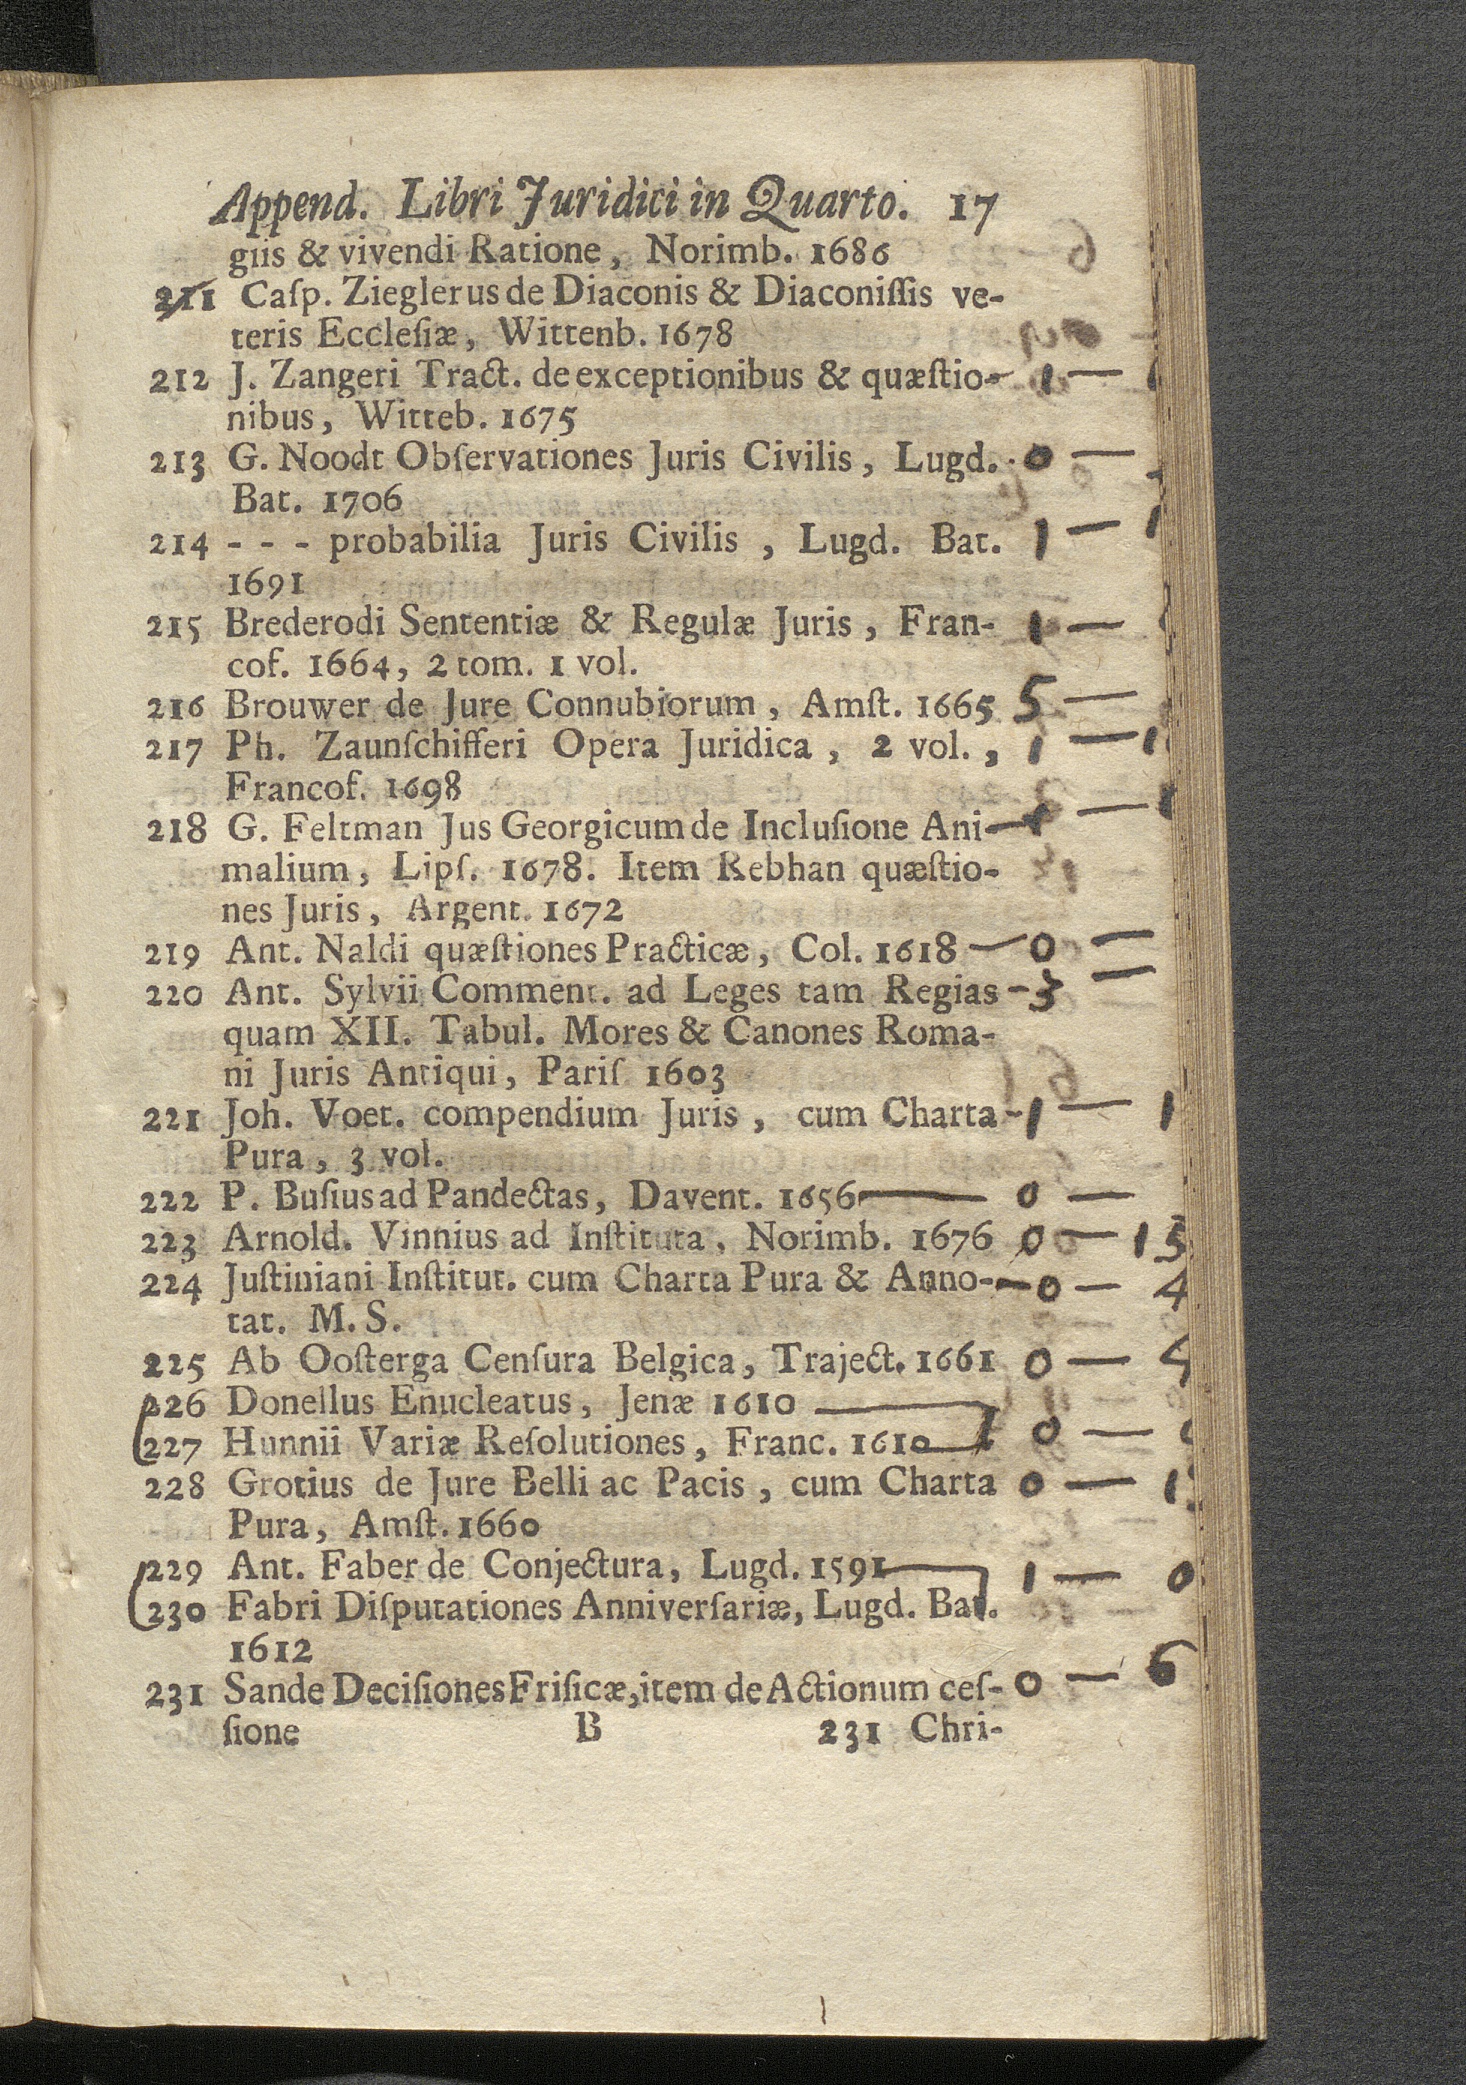 Append. Libri Juridici in Quarto. 17
giis & vivendi Ratione, Norimb. 1686
211 Caſp. Zieglerus de Diaconis & Diaconiſſis ve-
teris Eccleſiæ, Wittenb. 1678
212 J. Zangeri Tract. de exceptionibus & quæſtio- 1 —
nibus, Witteb. 1675
213 G. Noodt Obſervationes Juris Civilis, Lugd. 0 —
Bat. 1706
214 - - - probabilia Juris Civilis, Lugd. Bat. 1 — 1
1691
215 Brederodi Sententiæ & Regulæ Juris, Fran- 1 —
cof. 1664, 2 tom. 1 vol.
216 Brouwer de Jure Connubiorum, Amſt. 1665 5 —
217 Ph. Zaunſchifferi Opera Juridica, 2 vol., 1 — 1
Francof. 1698
218 G. Feltman Jus Georgicum de Incluſione Ani- 1 —
malium, Lipſ. 1678. Item Rebhan quæſtio-
nes Juris, Argent. 1672
219 Ant. Naldi quæſtiones Practicæ, Col. 1618 — 0 —
220 Ant. Sylvii Comment. ad Leges tam Regias - 3 —
quam XII. Tabul. Mores & Canones Roma-
ni Juris Antiqui, Pariſ 1603
221 Joh. Voet. compendium Juris, cum Charta - 1 — 1
Pura, 3 vol.
222 P. Buſius ad Pandectas, Davent. 1656 — 0 —
223 Arnold. Vinnius ad Inſtituta, Norimb. 1676 0 — 15
224 Juſtiniani Inſtitut. cum Charta Pura & Anno- — 0 — 4
tat. M. S.
225 Ab Ooſterga Cenſura Belgica, Traject. 1661 0 — 4
226 Donellus Enucleatus, Jenæ 1610
227 Hunnii Variæ Reſolutiones, Franc. 1610 0 —
228 Grotius de Jure Belli ac Pacis, cum Charta 0 — 1
Pura, Amſt. 1660
229 Ant. Faber de Conjectura, Lugd. 1591 1 — 0
230 Fabri Diſputationes Anniverſariæ, Lugd. Bat.
1612
231 Sande Deciſiones Friſicæ, item de Actionum ceſ- 0 — 6
ſione B 231 Chri-